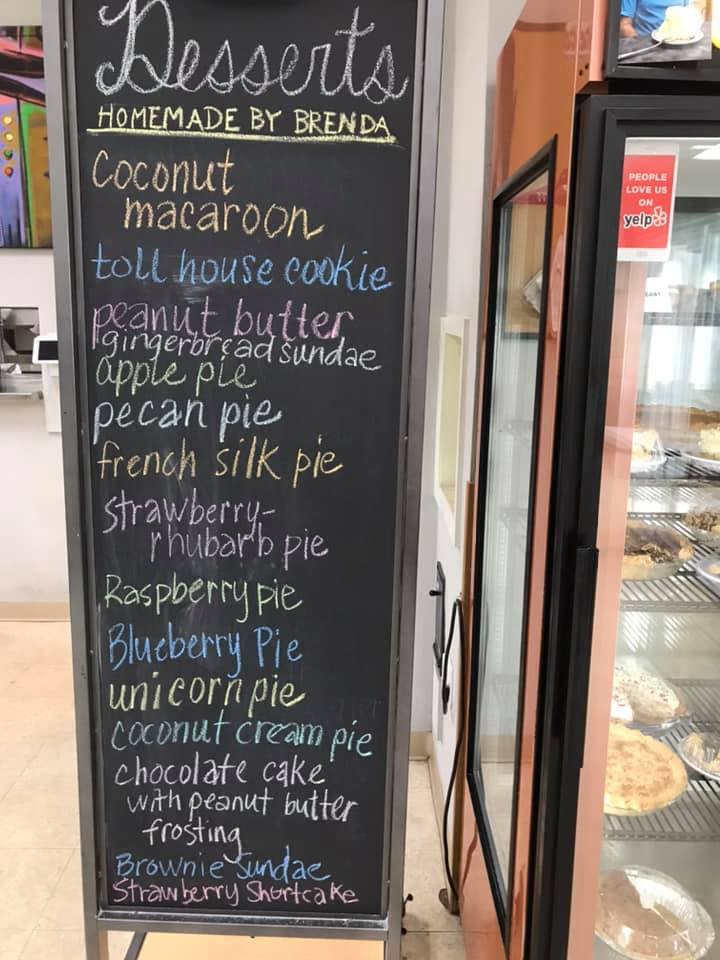 Desserts
HOMEMADE BY BRENDA
Coconut
macaroon
toll house cookie
peanut butter
gingerbread sundae
apple pie
pecan pie
french silk pie
strawberry-
rhubarb pie
Raspberry pie
Blueberry Pie
unicorn pie
coconut cream pie
chocolate cake
with peanut butter
frosting
Brownie Sundae
Strawberry Shortcake
PEOPLE
LOVE US
ON
yelp